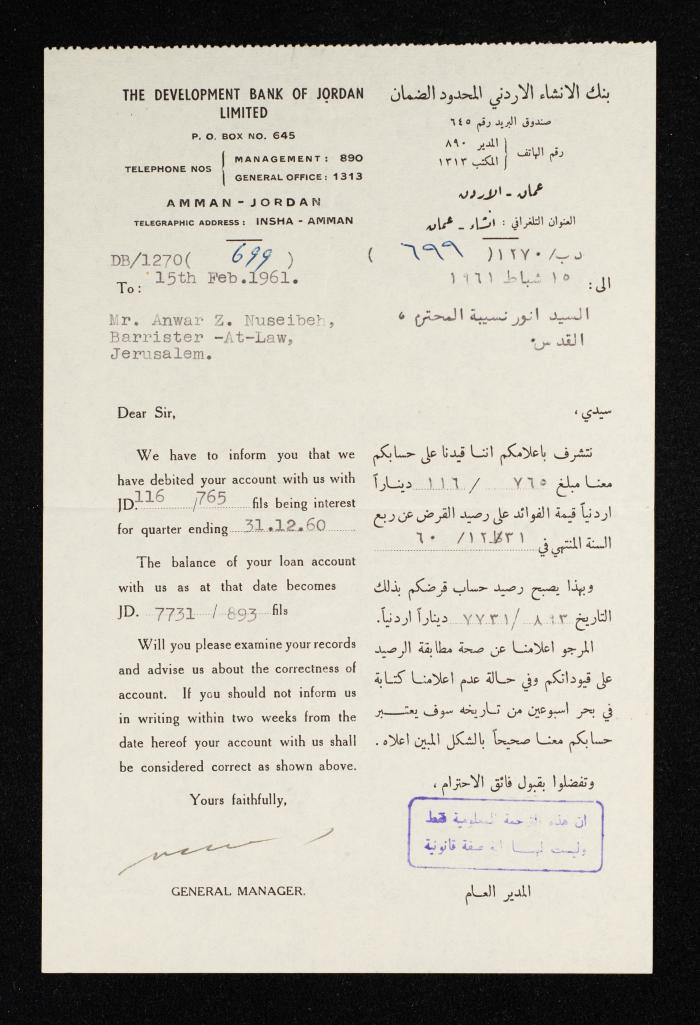 THE DEVELOPMENT BANK OF JORDAN
LIMITED
P. O. BOX NO. 645
TELEPHONE NOS
MANAGEMENT : 890
GENERAL OFFICE : 1313
AMMAN - JORDAN
TELEGRAPHIC ADDRESS : INSHA - AMMAN
DB/1270( 699 )
To: 15th Feb.1961.
Mr. Anwar Z. Nuseibeh,
Barrister -At-Law,
Jerusalem.
Dear Sir,
We have to inform you that we
have debited your account with us with
JD. 116 /765 fils being interest
for quarter ending 31.12.60
The balance of your loan account
with us as at that date becomes
JD. 7731 / 893 fils
Will you please examine your records
and advise us about the correctness of
account. If you should not inform us
in writing within two weeks from the
date hereof your account with us shall
be considered correct as shown above.
Yours faithfully,
GENERAL MANAGER.
بنك الانشاء الاردني المحدود الضمان
صندوق البريد رقم ٦٤٥
رقم الهاتف
المدير ٨٩٠
المكتب ١٣١٣
عمان - الاردن
العنوان التلغرافي : انشاء - عمان
دب/١٢٧٠( ٦٩٩ )
الى: ١٥ شباط ١٩٦١
السيد انور نسيبة المحترم ،
القدس.
سيدي ،
نتشرف باعلامكم اننا قيدنا على حسابكم
معنا مبلغ ٧٦٥ / ١١٦ ديناراً
اردنياً قيمة الفوائد على رصيد القرض عن ربع
السنة المنتهي في ٣١/١٢/ ٦٠
وبهذا يصبح رصيد حساب قرضكم بذلك
التاريخ ٨٩٣/ ٧٧٣١ ديناراً اردنياً.
المرجو اعلامنا عن صحة مطابقة الرصيد
على قيوداتكم وفي حالة عدم اعلامنا كتابة
في بحر اسبوعين من تاريخه سوف يعتبر
حسابكم معنا صحيحاً بالشكل المبين اعلاه .
وتفضلوا بقبول فائق الاحترام ،
ان هذه الترجمة للمعلومية فقط
وليست لها اية صفة قانونية
المدير العام